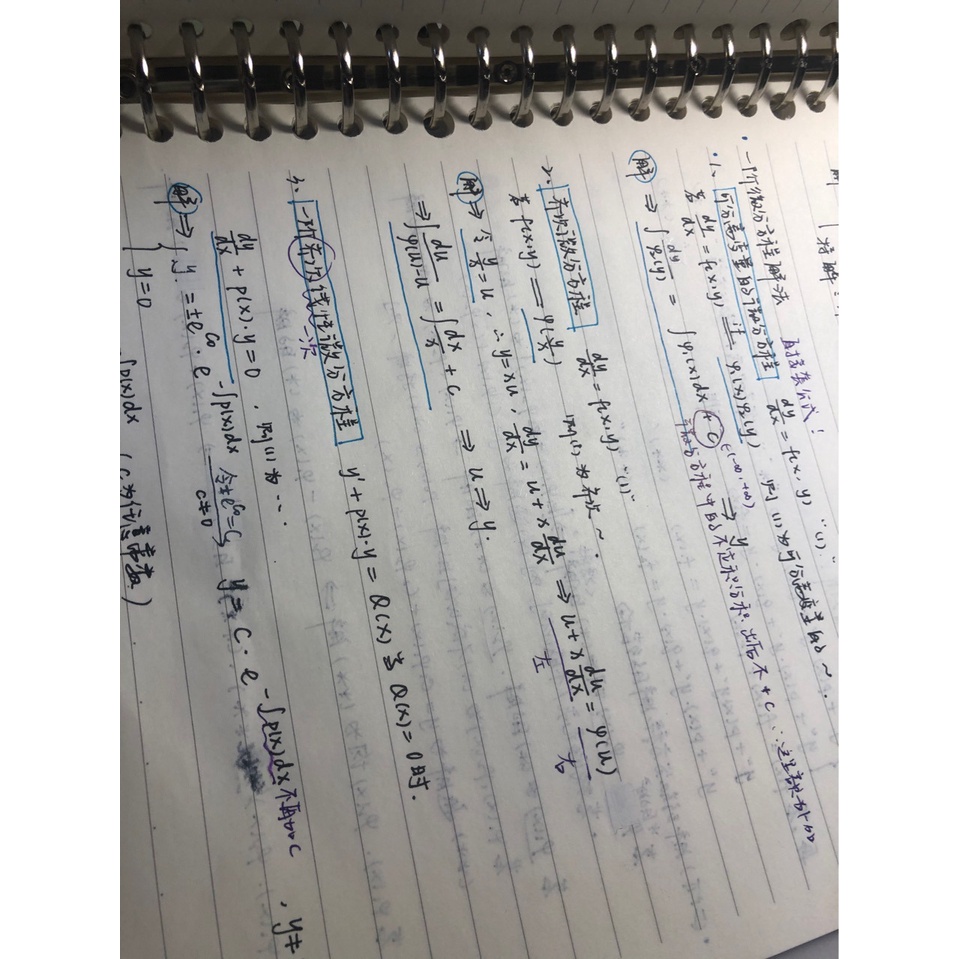 解
特解
· 一阶微分方程解法 用于考公式!
· 1、可分离变量的微分方程 dy/dx = f(x,y) "(1)"
若 dy/dx = f(x,y) 过 φ₁(x)φ₂(y) 则 (1) 为可分离变量的 ~ .
解 ⇒ ∫ dy/φ₂(y) = ∫ φ₁(x)dx + C ∈(-∞,+∞) ⇒ y
微分方程中的不定积分 +C
2、齐次微分方程 dy/dx = f(x,y) "(1)"
若 f(x,y) = φ(y/x) 则(1) 为齐次 ~ .
解 ⇒ 令 y/x = u , ∴ y = xu , dy/dx = u + x du/dx ⇒ u + x du/dx = φ(u)
左 右
⇒ ∫ du/φ(u)-u = ∫ dx/x + C ⇒ u ⇒ y .
3、一阶齐次线性微分方程 y' + p(x)·y = Q(x) 当 Q(x) = 0 时.
一次
dy/dx + p(x)·y = 0 , 则 (1) 为 ...
解 ⇒ y = ±e^C₀ · e^-∫p(x)dx 令±e^C₀=C, C≠0 y = C · e^-∫p(x)dx 不再加C , y≠
y = 0
∫p(x)dx ( C为任意常数 )